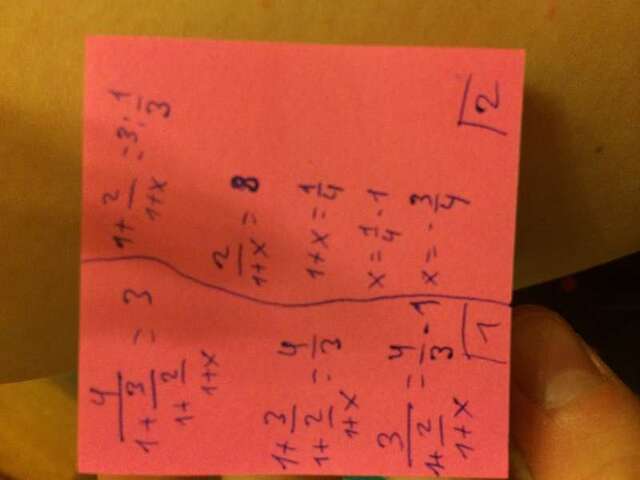 4/(1+3/(1+2/(1+x))) = 3
1+3/(1+2/(1+x)) = 4/3
3/(1+2/(1+x)) = 4/3 - 1
1
1+2/(1+x) = 3:1/3
2/(1+x) = 8
1+x = 1/4
x = 1/4 - 1
x = - 3/4
2